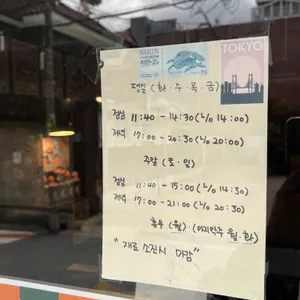 TOKYO
평일 (화·수·목·금)
점심 11:40 - 14:30 (L/O 14:00)
저녁 17:00 - 20:30 (L/O 20:00)
주말 (토·일)
점심 11:40 - 15:00 (L/O 14:30)
저녁 17:00 - 21:00 (L/O 20:30)
휴무 (월) (마지막주 월·화)
"재료 소진시 마감"